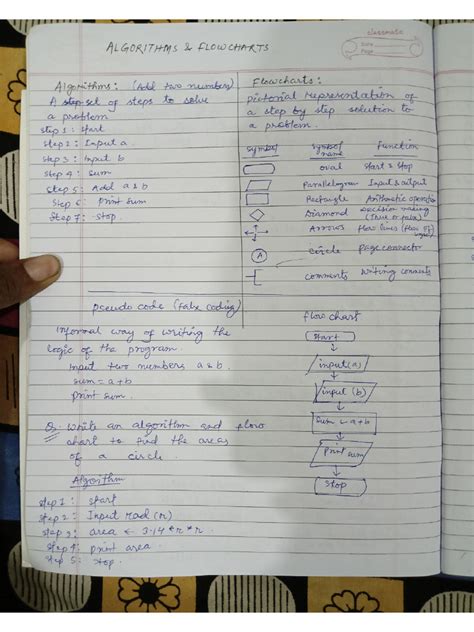 classmate
Date
Page
ALGORITHMS & FLOWCHARTS
Algorithms: (Add two numbers)
A step set of steps to solve
a problem
Step 1: Start
Step 2: Input a.
Step 3: Input b
Step 4: Sum
Step 5: Add a & b
Step 6: Print Sum
Step 7: Stop.
Flowcharts:
pictorial representation of
a step by step solution to
a problem.
Symbol Symbol name function
oval Start & Stop
Parallelogram Input & output
Rectangle Arithmetic operation
Diamond decision making (True or false)
Arrows flow lines (flow of
A circle Page connector
comments Writing comments
pseudo code (false coding)
Informal way of writing the
logic of the program.
Input two numbers a & b.
sum = a + b
print sum.
flow chart
Start
input (a)
input (b)
Sum ← a + b
Print sum
Stop
Q. Write an algorithm and flow
chart to find the areas
of a circle.
Algorithm
Step 1: Start
Step 2: Input rad (r)
Step 3: area ← 3.14 * r * r.
Step 4: print area.
Step 5: Stop.